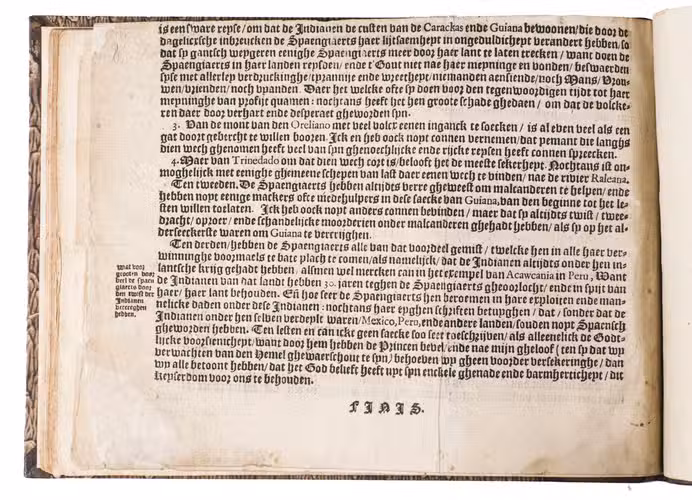 is een sware reyse / om dat de Indianen de custen van de Carackas ende Guiana bewoonen / die door de
dagelicrsche inbreucken de Spaengiaerts haer lijtsaemheyt in ongeduldicheyt verandert hebben / so
dat sy gantsch weygeren eenighe Spaengiaerts meer door haer lant te laten trecken / want doen de
Spaengiaerts in haer landen reysden / ende t'Gout niet nae haer meyninge en vonden / beswaerden
syse met allerley verdruckinghe / tyrannije ende wreetheyt / niemanden aensiende / noch Mans / Vrou-
wen / vrienden / noch vyanden. Daer het welcke ofse sy doen voor den tegenwoordigen tijdt tot haer
meyninghe van profijt quamen: nochtans heeft het hen groote schade ghedaen / om dat de volcke-
ren daer door verhart ende desperaet gheworden syn.
3. Van de mont van den Oreliano met veel volcx eenen inganck te soecken / is al even veel als een
gat doort gebercht te willen booren. Ick en heb oock nopt connen vernemen / dat yemant die langhs
dien wech ghenomen heeft veel van syn ghenoechlijcke ende rijcke reysen heeft connen spreecken.
4. Maer van Trinedado om dat dien wech cort is / belooft het de meeste sekerheyt. Nochtans ist on-
moghelijck met eenighe ghemeene schepen van last daer eenen wech te vinden / nae de rivier Raleana.
Ten tweeden. De Spaengiaerts hebben altijdts verre gheweest om malcanderen te helpen / ende
hebben nopt eenige mackers ofte niedehulpers in dese saecke van Guiana, van den beginne tot het le-
sten willen toelaten. Ick heb oock nopt anders connen bevinden / maer dat sy altijdts twist / twee-
dracht / oproer / ende schandelijcke moorderien onder malcanderen ghehadt hebben / als sy op het al-
derseeckerste waren om Guiana te vercrijghen.
Ten derden / hebben de Spaengiaerts alle van dat voordeel gemist / twelcke hen in alle haer ver-
winninghe voormaels te bate plach te comen / als namelijck / dat de Indianen altijdts onder hen in-
lantsche krijg gehadt hebben / alsmen wel mercken can in het exempel van Acawcania in Peru, Want
de Indianen van dat landt hebben 30. jaren teghen de Spaengiaerts gheoorlocht / ende in spijt van
haer / haer lant behouden. Eñ hoe seer de Spaengiaerts hen beroemen in hare exploiten ende man-
nelicke daden onder dese Indianen: nochtans haer eyghen schriften betuyghen / dat / sonder dat de
Indianen onder hen selven verdeylt waren / Mexico, Peru, ende andere landen / souden nopt Spaensch
gheworden hebben. Ten lesten en can ick geen saecke soo seer toeschrijven / als alleenelick de Godt-
lijcke voorsienicheyt / want door hem hebben de Princen bevel / ende nae mijn gheloof (ten sy dat wy
verwachten van den Hemel ghewaerschout te syn) behoeven wy gheen voorder versekeringhe / dan
wy alle betoont hebben / dat het God belieft heeft uyt syn enckele ghenade ende barmherticheyt / dit
Keyserdom voor ons te behouden.
Wat voor
groeten voor
deel de spaen
giaerts door
den twist der
Indianen
vercreghen
hebben.
FINIS.